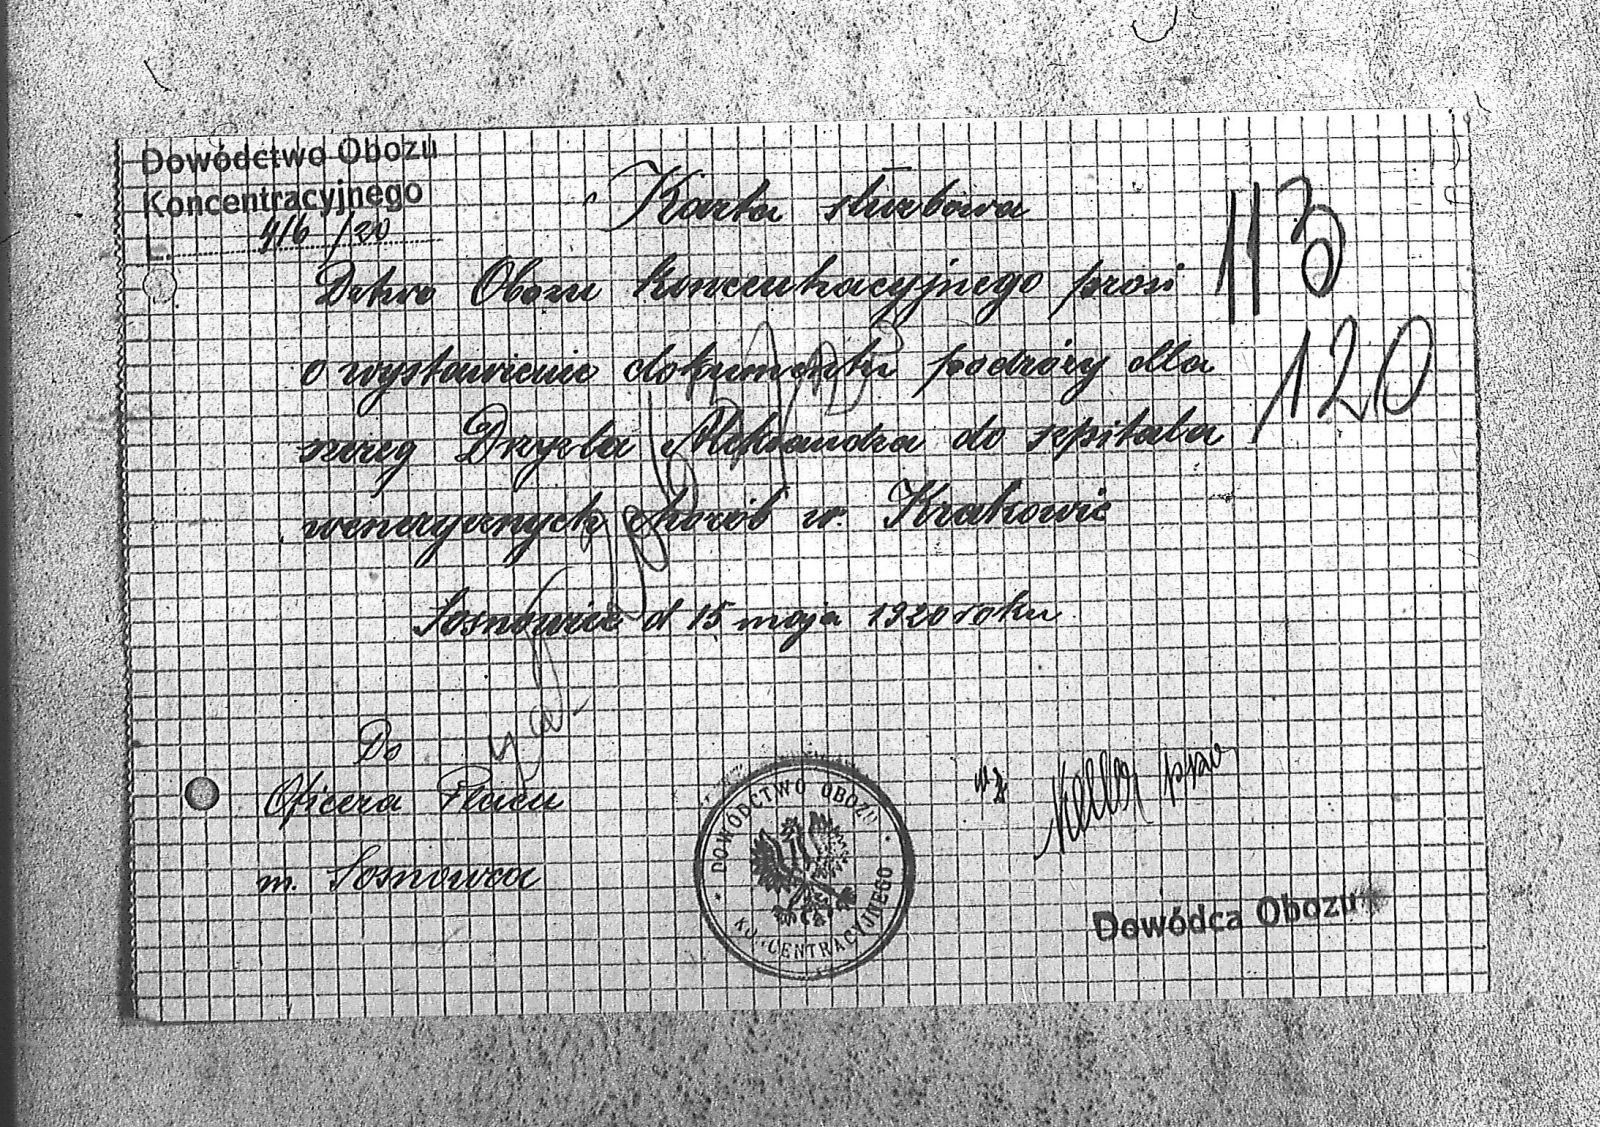 Dowództwo Obozu
Koncentracyjnego
L. 416/20
Karta służbowa
Dctwo Obozu koncentracyjnego prosi
o wystawienie dokumentu podróży dla
szereg Drzyzla Aleksandra do szpitala
wenerycznych chorób w. Krakowie
Sosnowiec d 15 maja 1920 roku
113
120
Do
Oficera Placu
m. Sosnowca
DOWÓDCTWO OBOZU
KONCENTRACYJNEGO
wz Keller ppor
Dowódca Obozu